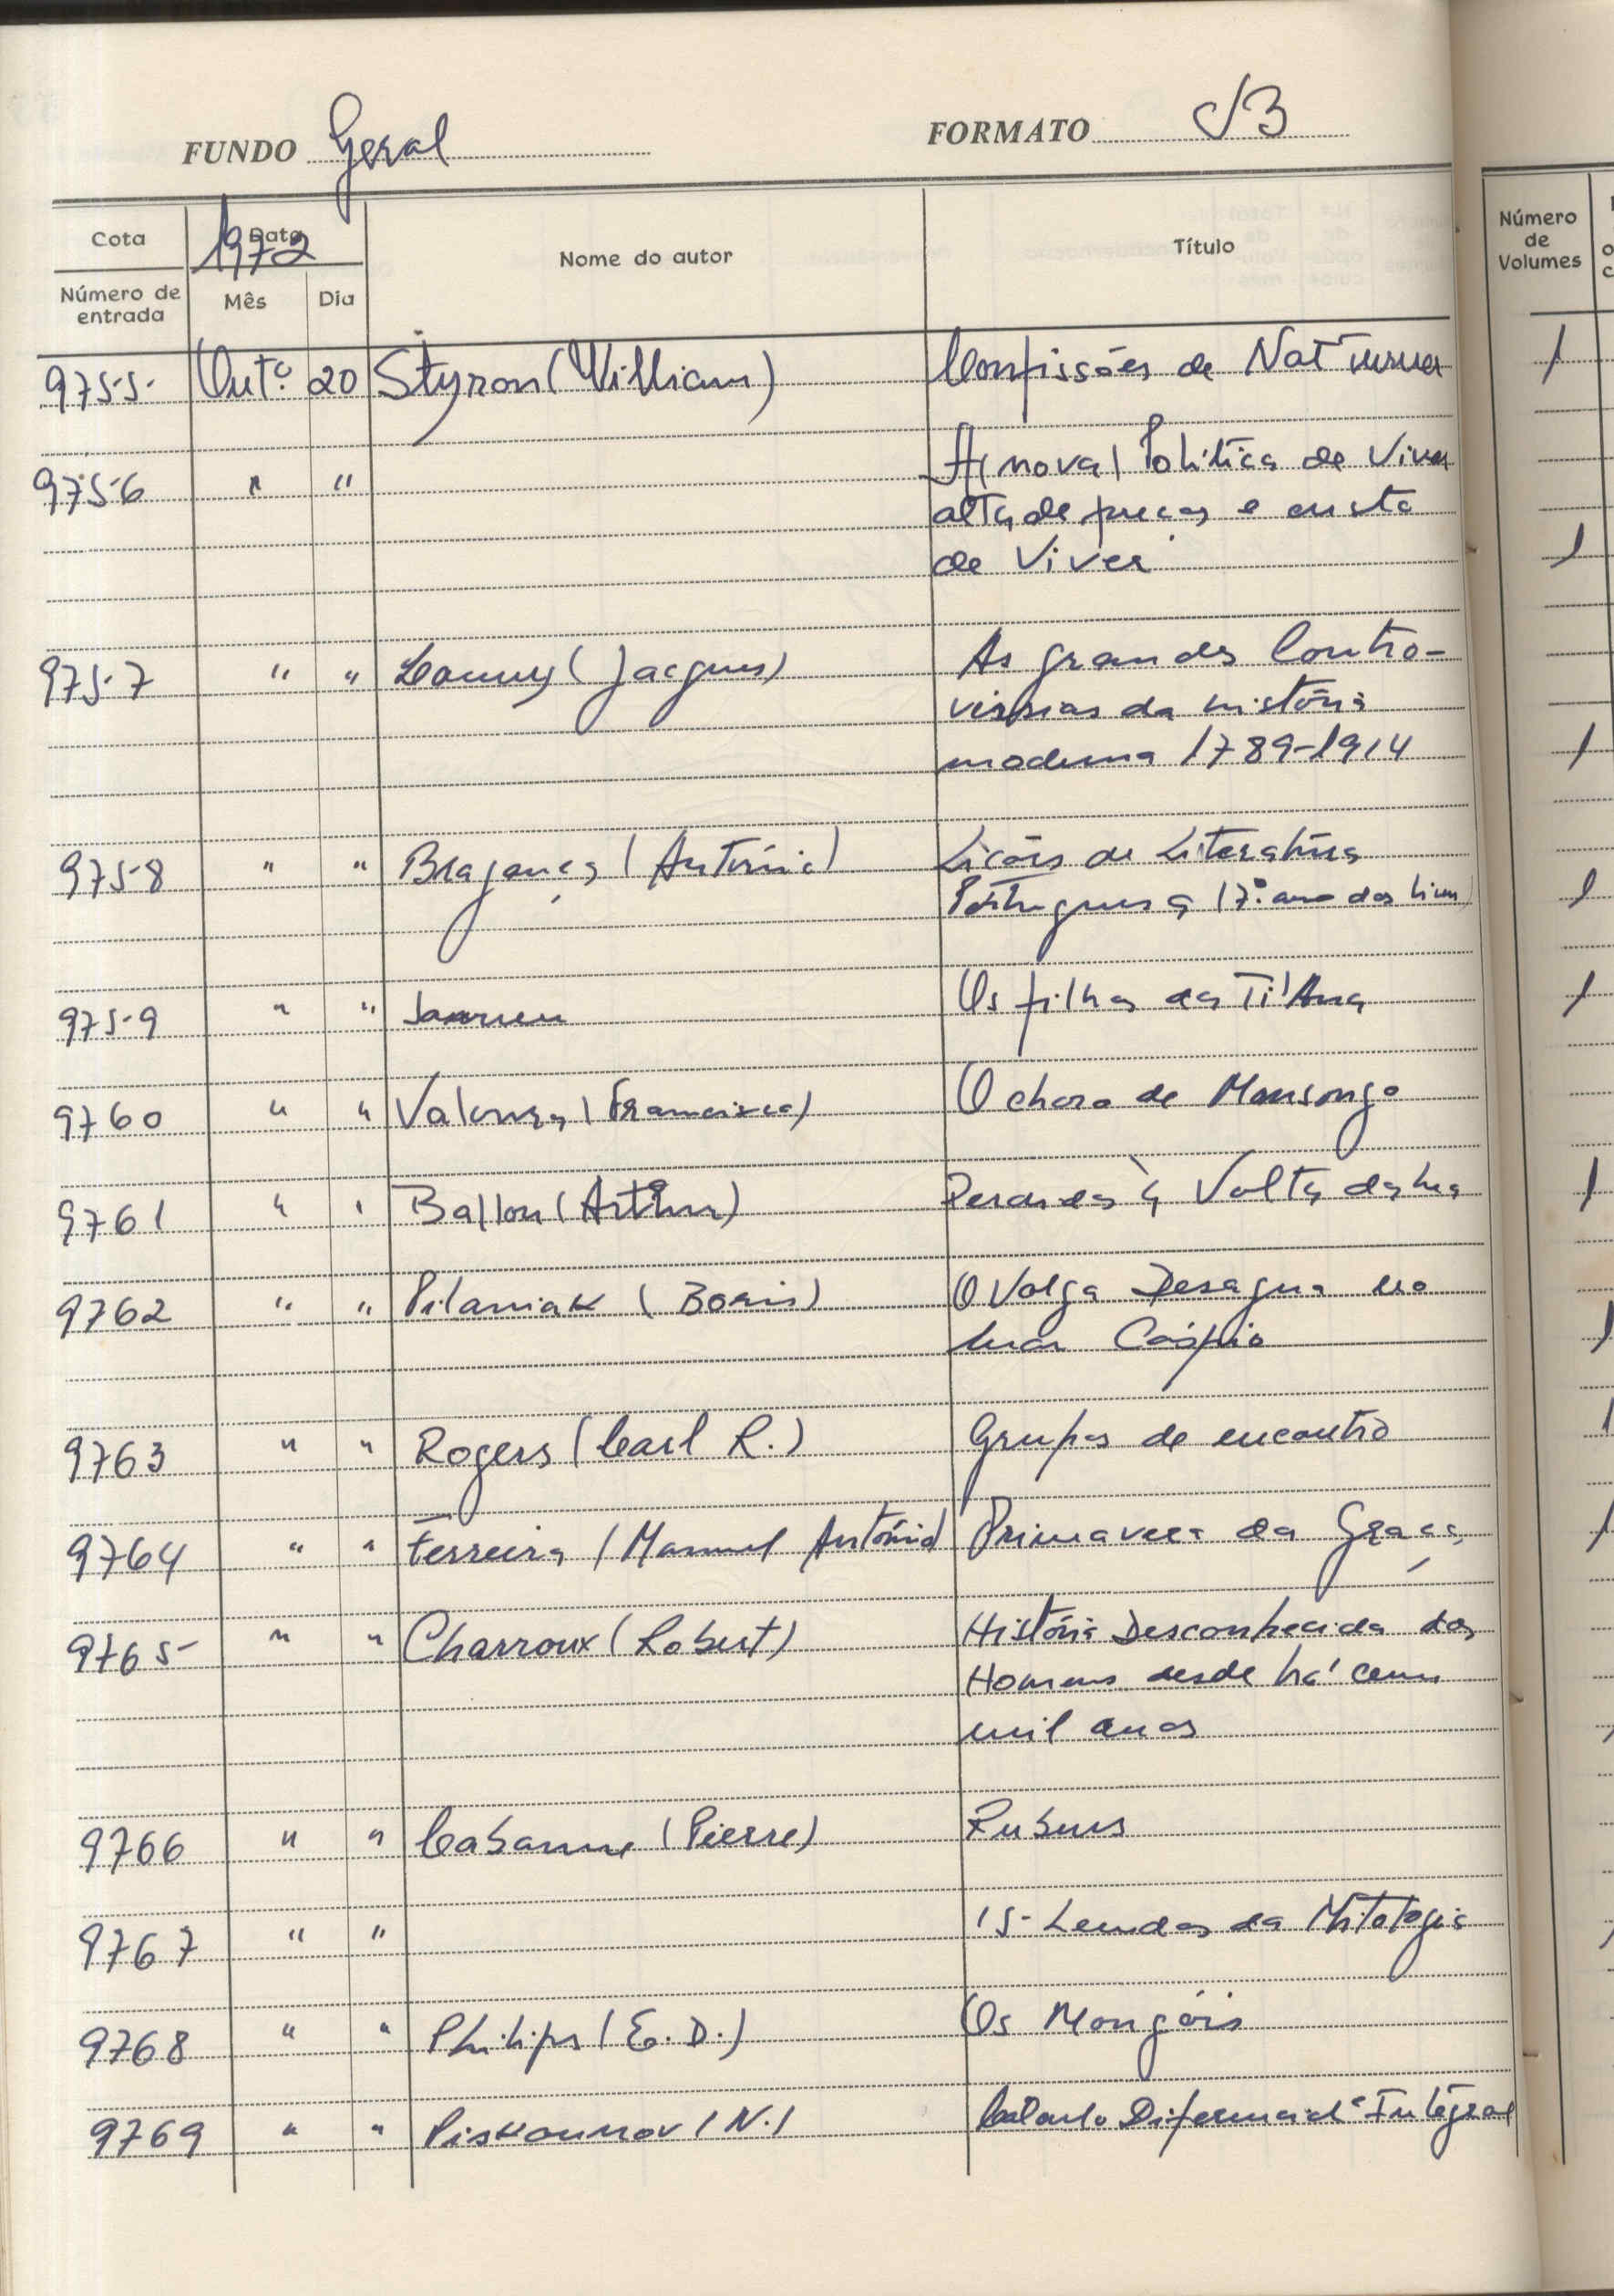 FUNDO Geral FORMATO
Cota Data 1972 Nome do autor Título Número de Volumes
Número de entrada Mês Dia
9755 Outº. 20 Styron (William) Confissões de Nat Turner 1
9756 " " A (nova) Política de Viver
alta de preços e custo
de Viver 1
9757 " " (Jacques) As grandes Contro-
vérsias da história
moderna 1789-1914 1
9758 " " Bragança (António) Lições de Literatura
Portuguesa (7º. ano dos liceus) 1
9759 " " Os filhos da Ti'Ana 1
9760 " " (Francisco) O choro de
9761 " " Ballon (Arthur) à Volta da lua 1
9762 " " Pilaniak (Boris) O Volga Desagua no
mar Cáspio 1
9763 " " Rogers (Carl R.) Grupos de encontro 1
9764 " " Ferreira (Manuel António) Primavera da Graça 1
9765 " " Charroux (Robert) História Desconhecida dos
Homens desde há cem
mil anos
9766 " " Cabanne (Pierre) Rubens
9767 " " 15 Lendas da Mitologia
9768 " " Philips (E. D.) Os Mongóis
9769 " " Piskounov (N.) Calculo Diferencial e Integral